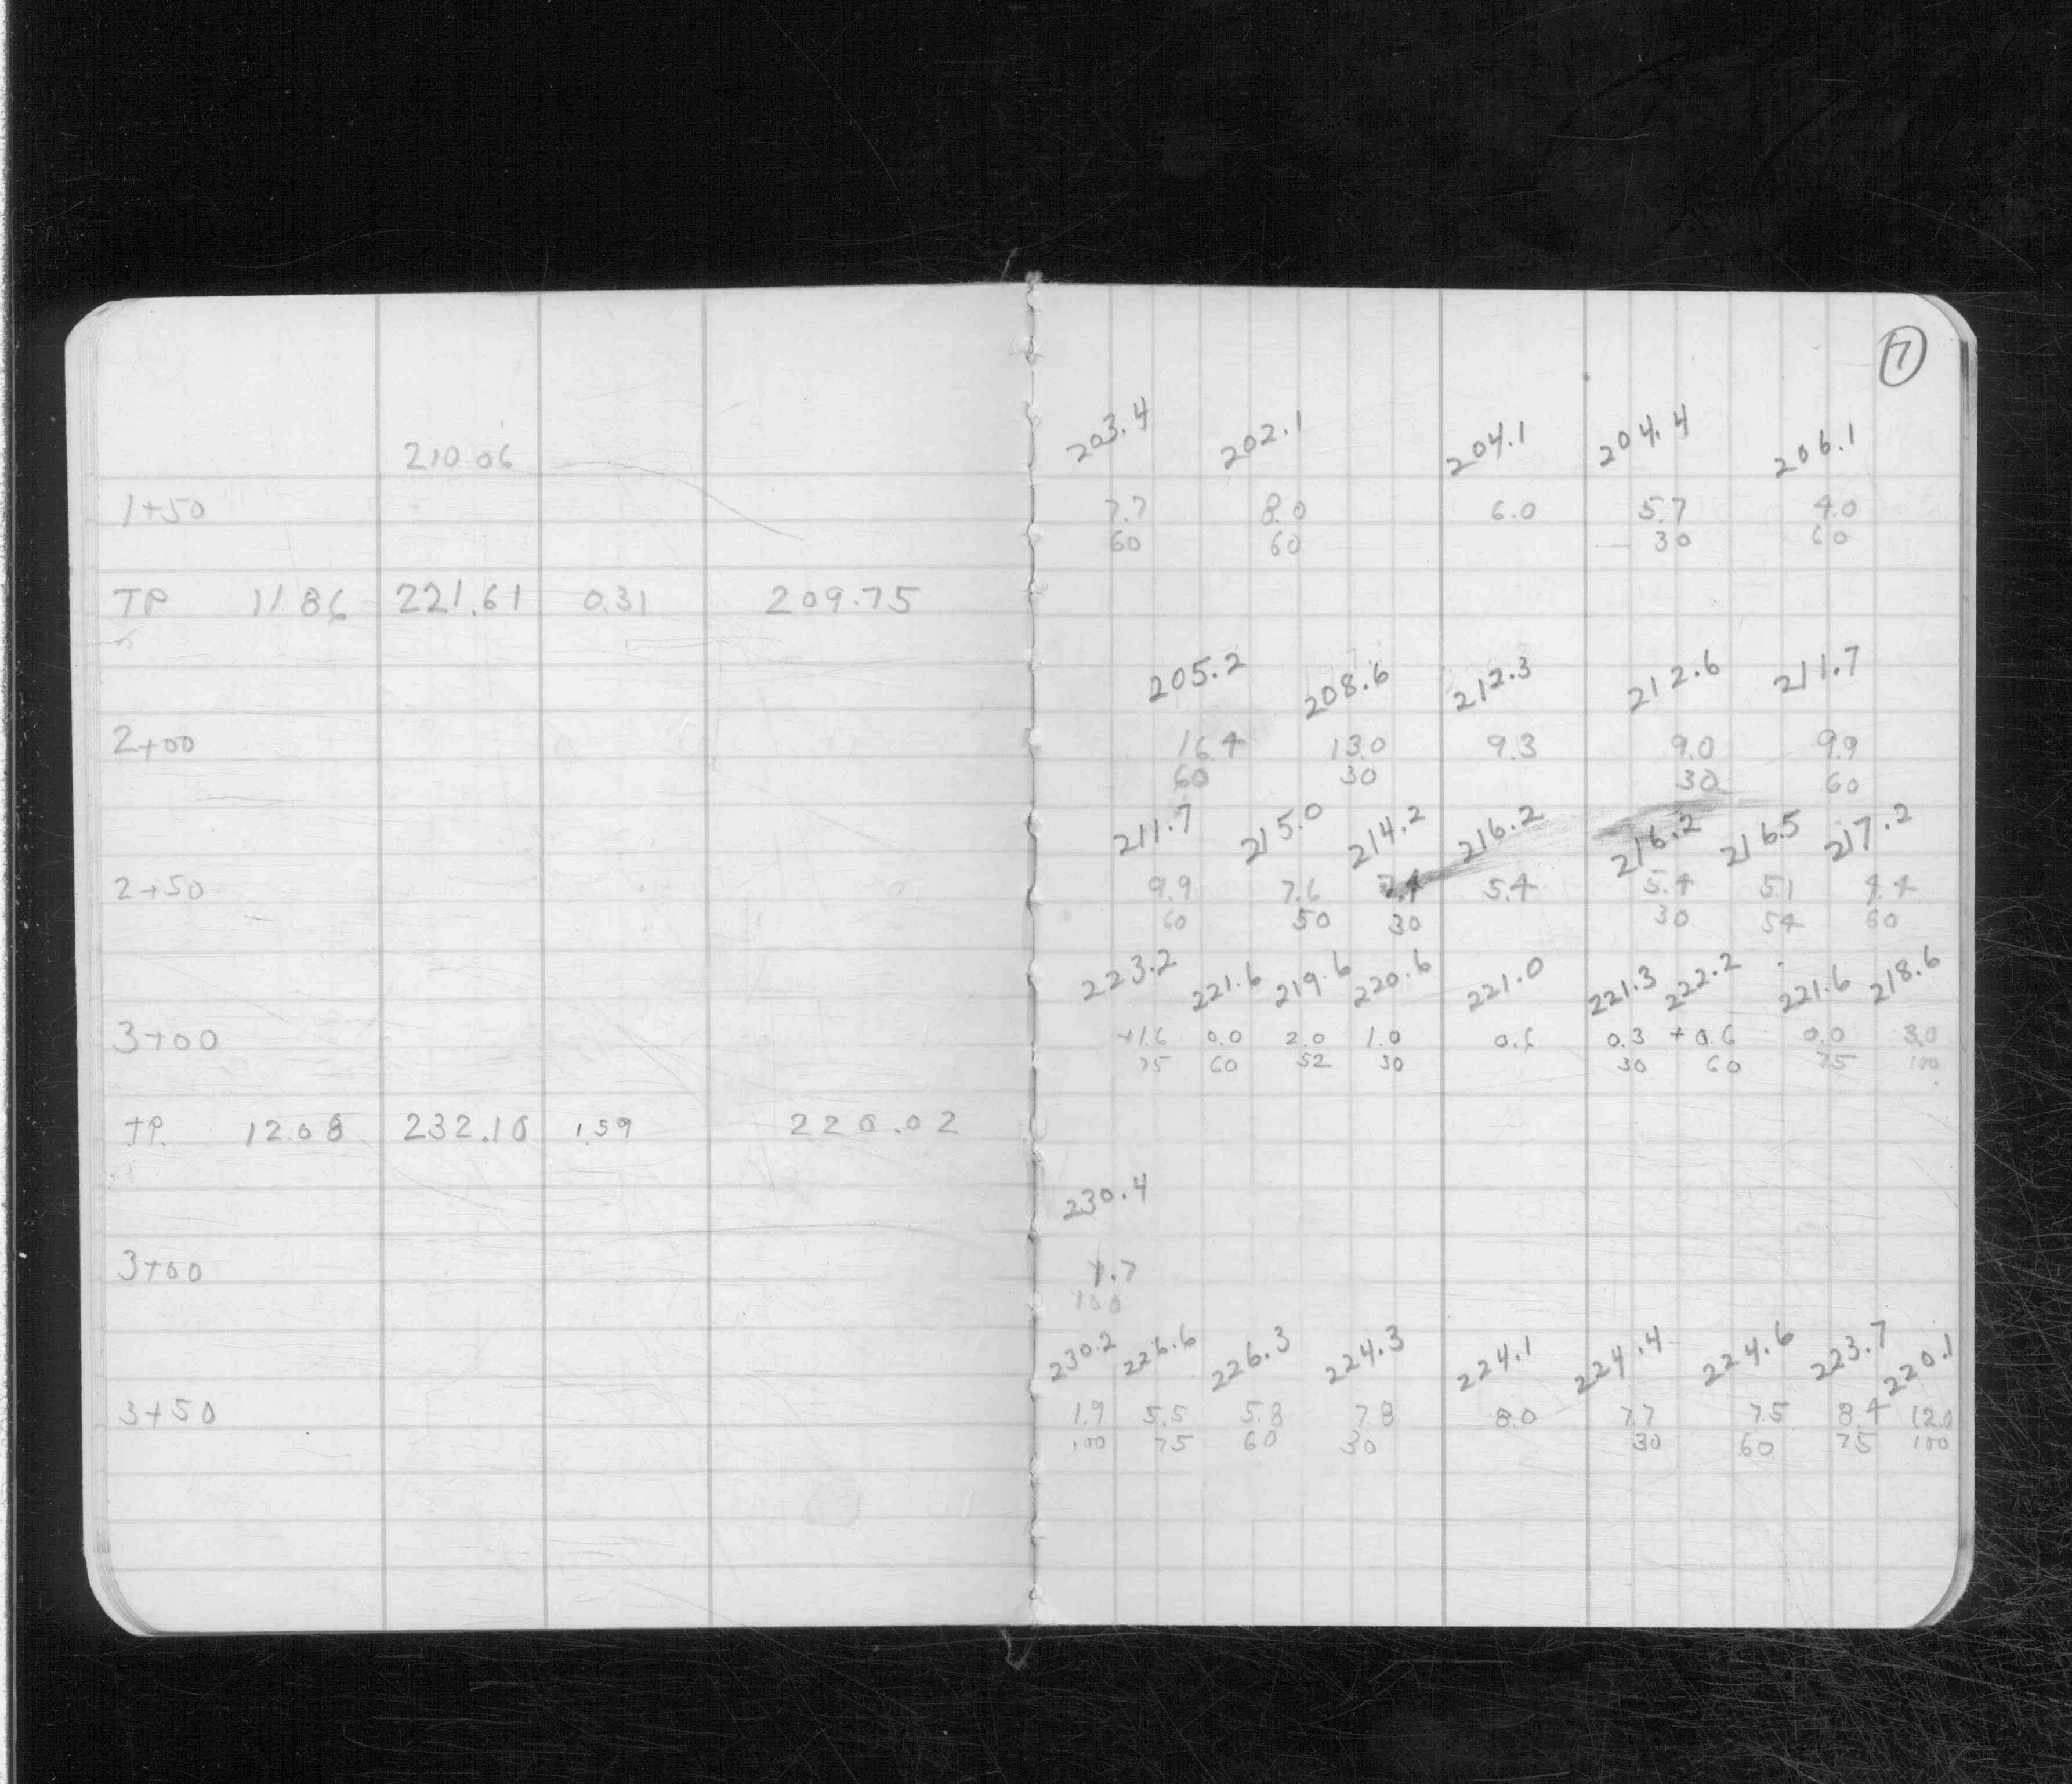 7
203.4 202.1 204.1 204.4 206.1
210 06
1+50 7.7 8.0 6.0 5.7 4.0
60 60 30 60
TP 11 86 221.61 0.31 209.75
205.2 208.6 212.3 212.6 211.7
2+00 16.4 13.0 9.3 9.0 9.9
60 30 30 60
211.7 215.0 214.2 216.2 216.2 216.5 217.2
2+50 9.9 7.6 7.4 5.4 5.4 5.1 4.4
60 50 30 30 54 60
223.2 221.6 219.6 220.6 221.0 221.3 222.2 221.6 218.6
3+00 +1.6 0.0 2.0 1.0 0.6 0.3 +0.6 0.0 3.0
75 60 52 30 30 60 75 100
TP. 12.08 232.10 1.59 220.02
230.4
3+00 1.7
100
230.2 226.6 226.3 224.3 224.1 224.4 224.6 223.7 220.1
3+50 1.9 5.5 5.8 7.8 8.0 7.7 7.5 8.4 12.0
100 75 60 30 30 60 75 100